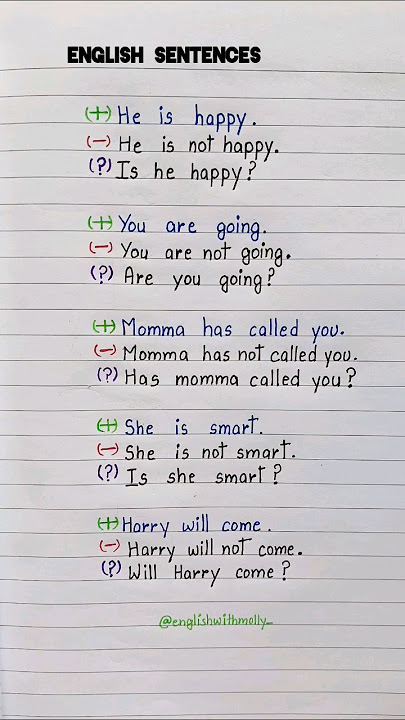 ENGLISH SENTENCES
(+) He is happy.
(-) He is not happy.
(?) Is he happy?
(+) You are going.
(-) You are not going.
(?) Are you going?
(+) Momma has called you.
(-) Momma has not called you.
(?) Has momma called you?
(+) She is smart.
(-) She is not smart.
(?) Is she smart?
(+) Harry will come.
(-) Harry will not come.
(?) Will Harry come?
@englishwithmolly_